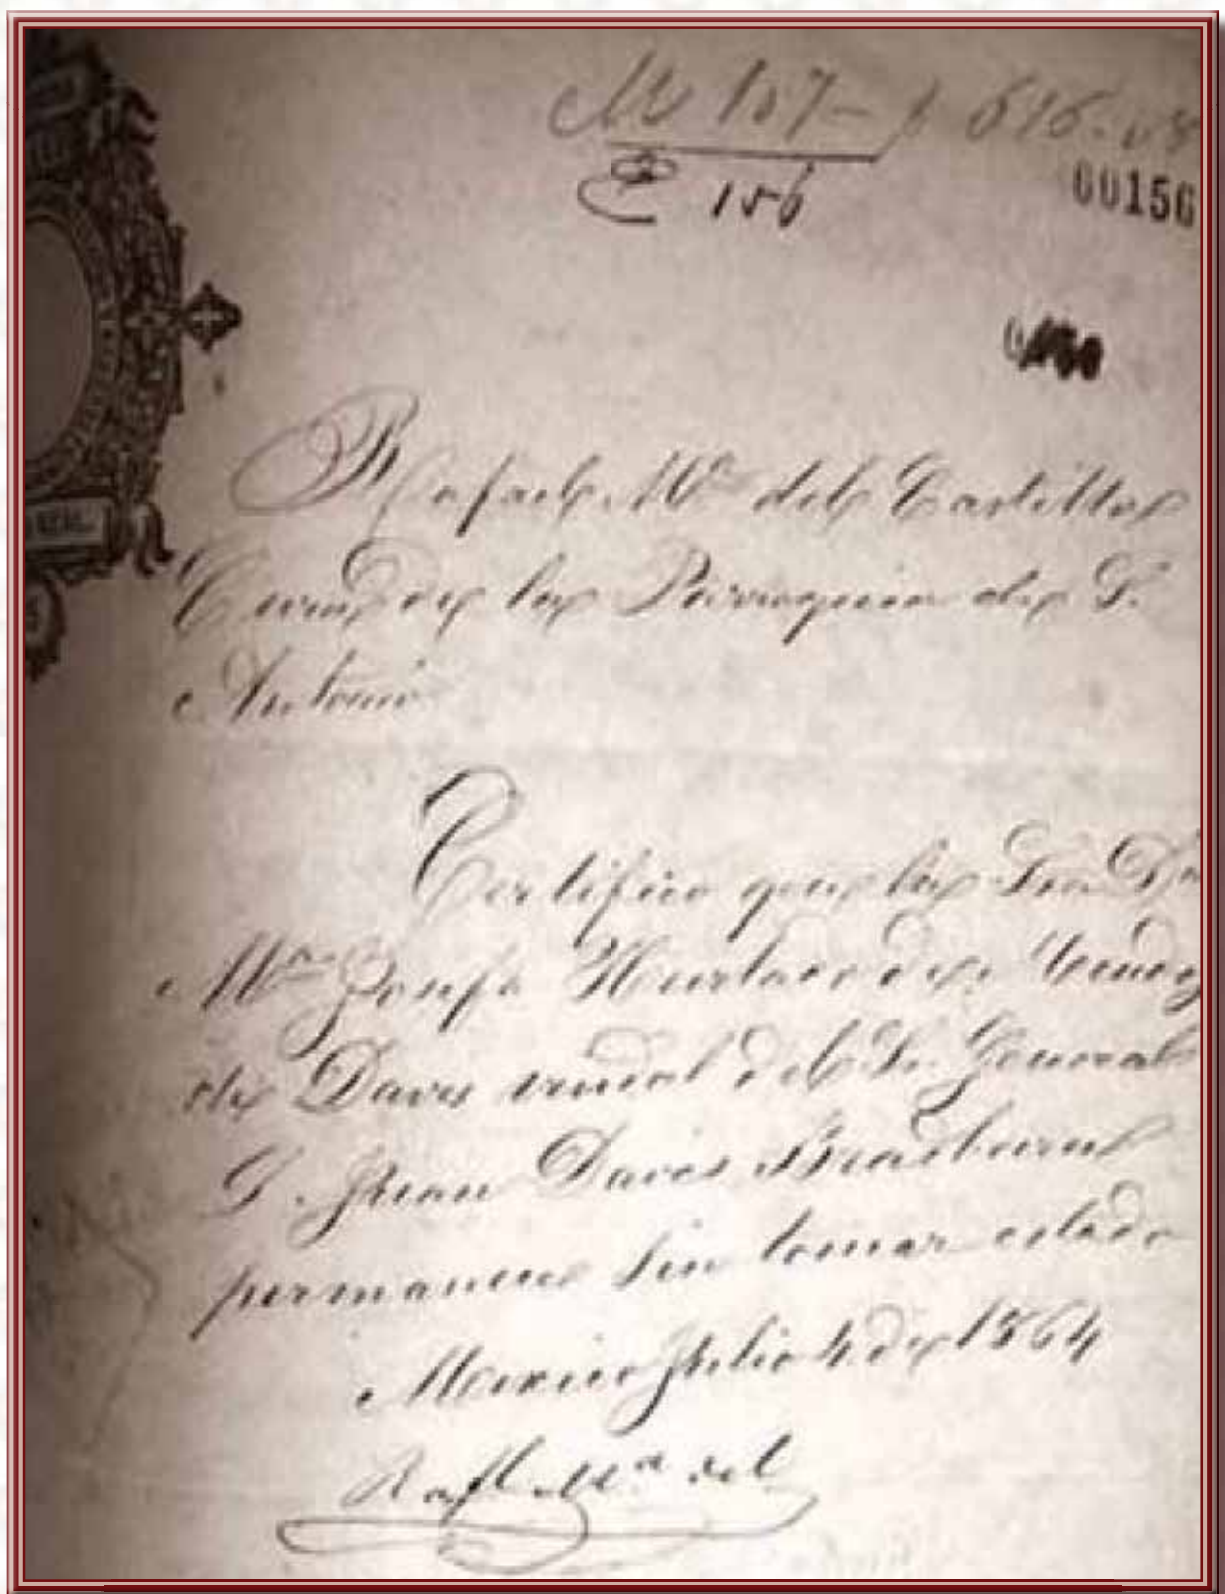 157 - 
156
00156
Rafael Mª del Castillo
Cura de la Parroquia de S.
Antonio
Certifico que la Sra Dª
Mª Josefa Hurtado de
de Davis viuda del Sr. General
D. Juan Davis Bradburn
permanece sin tomar estado
Mexico Julio 4 de 1864
Rafl Mª del